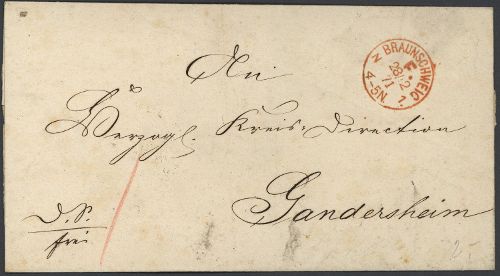 BRAUNSCHWEIG
28 2
71
4-5N
An
Herzogl. Kreis-Direction
Gandersheim
D. S.
frei